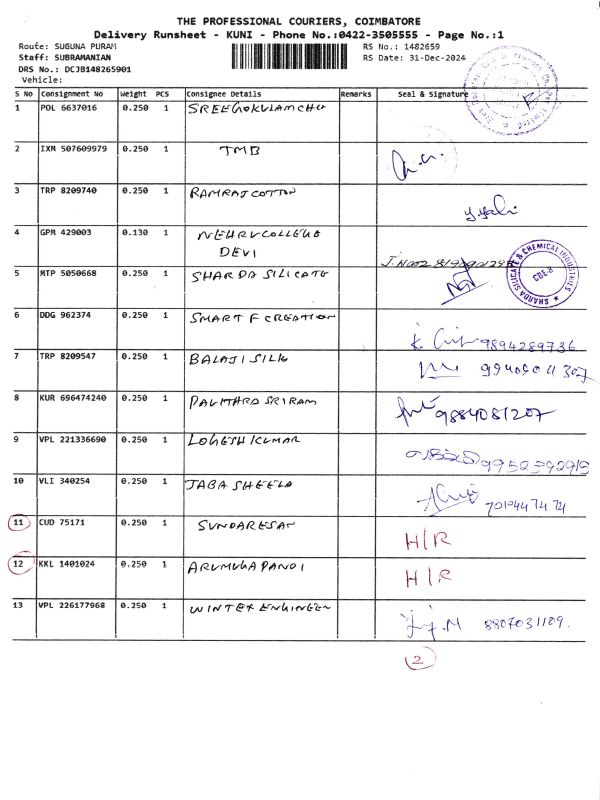 THE PROFESSIONAL COURIERS, COIMBATORE
Delivery Runsheet - KUNI - Phone No.:0422-3505555 - Page No.:1
Route: SUGUNA PURAM RS No.: 1482659
Staff: SUBRAMANIAN RS Date: 31-Dec-2024
DRS No.: DCJB148265901
Vehicle:
S No Consignment No Weight PCS Consignee Details Remarks Seal & Signature
1 POL 6637016 0.250 1 SREEGOKULAMCHU
2 IXM 507609979 0.250 1 TMB
3 TRP 8209740 0.250 1 RAMRAJ COTTON
4 GPM 429003 0.130 1 NEHRU COLLEGE
DEVI
5 MTP 5050668 0.250 1 SHARDA SILICATE
SHARDA SILICATE & CHEMICAL INDUSTRIES
6 DDG 962374 0.250 1 SMART F CREATION 9894289736
7 TRP 8209547 0.250 1 BALAJI SILK
8 KUR 696474240 0.250 1 PAVITHRA SRIRAM 9884081207
9 VPL 221336690 0.250 1 LOGESHKUMAR
10 VLI 340254 0.250 1 JABA SHEELA
11 CUD 75171 0.250 1 SUNDARESAN H/R
12 KKL 1401024 0.250 1 ARUMUGAPANDI H/R
13 VPL 226177968 0.250 1 WINTEX ENGINEER 8807031109.
2